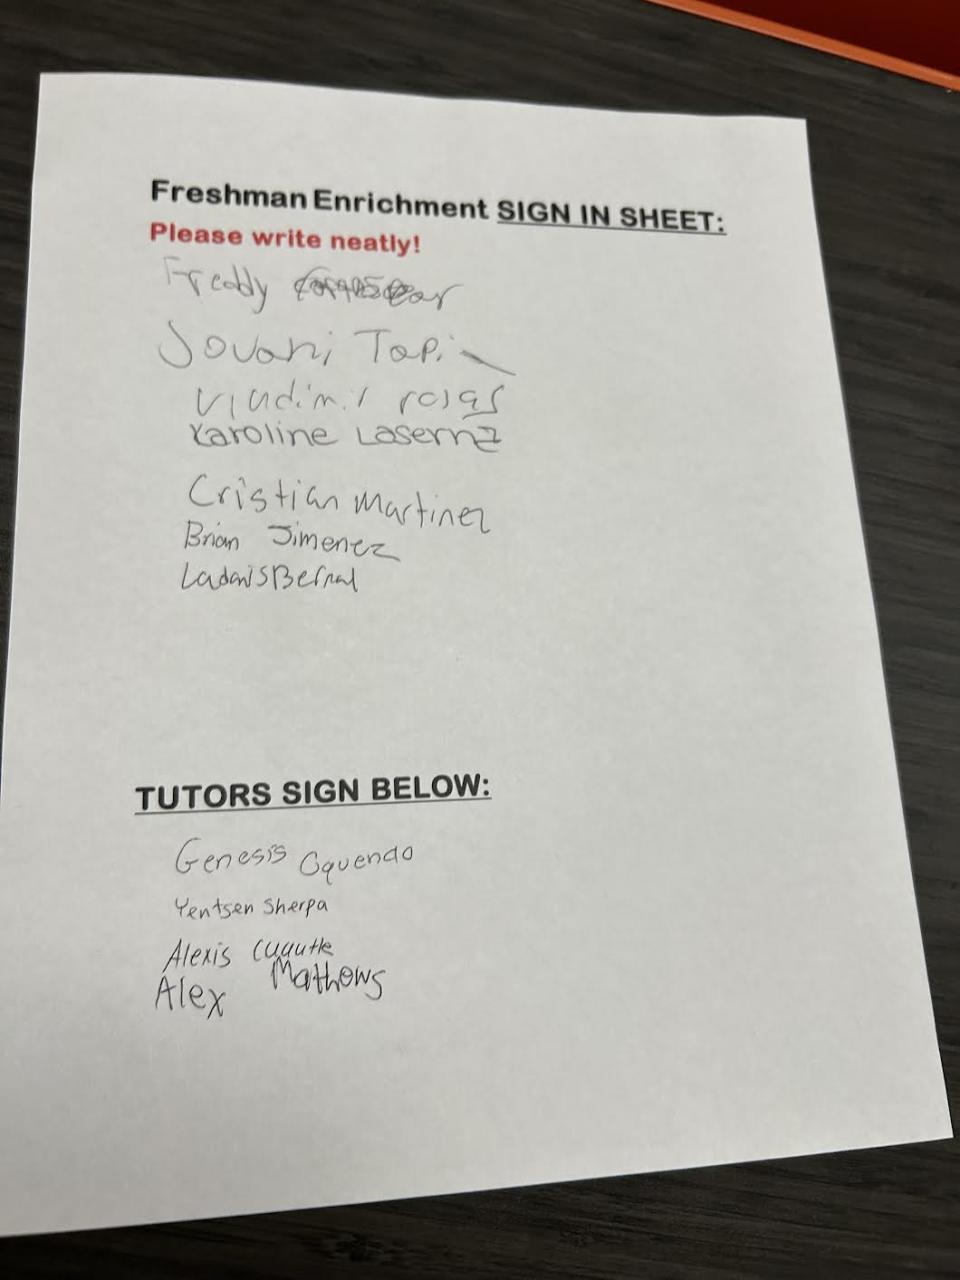 Freshman Enrichment SIGN IN SHEET:
Please write neatly!
Freddy
Jovani Tapia
Vladimir rojas
Karoline Laserna
Cristian Martinez
Brian Jimenez
Ladanis Bernal
TUTORS SIGN BELOW:
Genesis Oquendo
Yentsen Sherpa
Alexis Cuautle
Alex Mathows